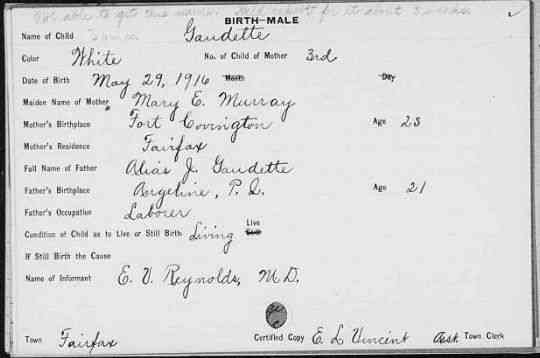 Not able to get this name. Held report for it about 3 weeks.
BIRTH—MALE
Name of Child Gaudette
Color White No. of Child of Mother 3rd
Date of Birth May 29, 1916 Month Day
Maiden Name of Mother Mary E. Murray
Mother's Birthplace Fort Covington Age 23
Mother's Residence Fairfax
Full Name of Father Alias J. Gaudette
Father's Birthplace P. Q. Age 21
Father's Occupation Laborer
Condition of Child as to Live or Still Birth Living Live Still
If Still Birth the Cause
Name of Informant E. V. Reynolds, M.D.
Town Fairfax Certified Copy E. L. Vincent Asst. Town Clerk